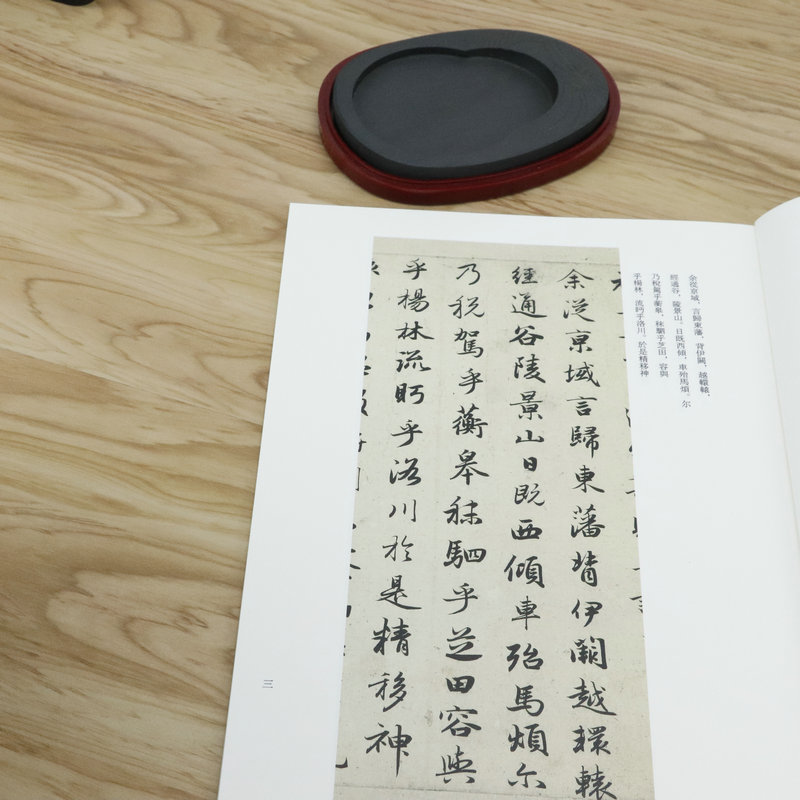 余從京域，言歸東藩，背伊闕，越轘轅，
經通谷，陵景山。日既西傾，車殆馬煩。尔
乃稅駕乎蘅皋，秣駟乎芝田，容與
乎楊林，流眄乎洛川。於是精移神
余從京域言歸東藩背伊闕越轘轅
經通谷陵景山日既西傾車殆馬煩尔
乃稅駕乎蘅皋秣駟乎芝田容與
乎楊林流眄乎洛川於是精移神
三